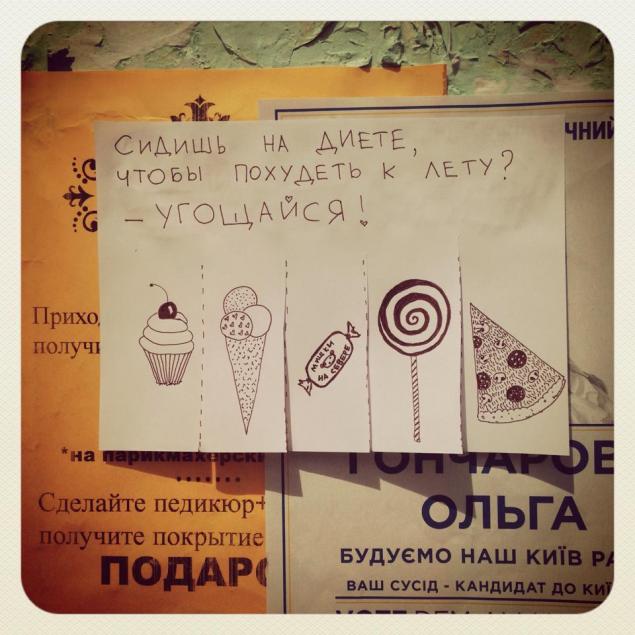 СИДИШЬ НА ДИЕТЕ,
ЧТОБЫ ПОХУДЕТЬ К ЛЕТУ?
– УГОЩАЙСЯ!
МИШКИ
НА СЕВЕРЕ
ЧНИЙ
получи
*на парикмахерск
Сделайте педикюр+
получите покрытие
ПОДАР
ГОНЧАРОВ
ОЛЬГА
БУДУЄМО НАШ КИЇВ РА
ВАШ СУСІД - КАНДИДАТ ДО КИЇ